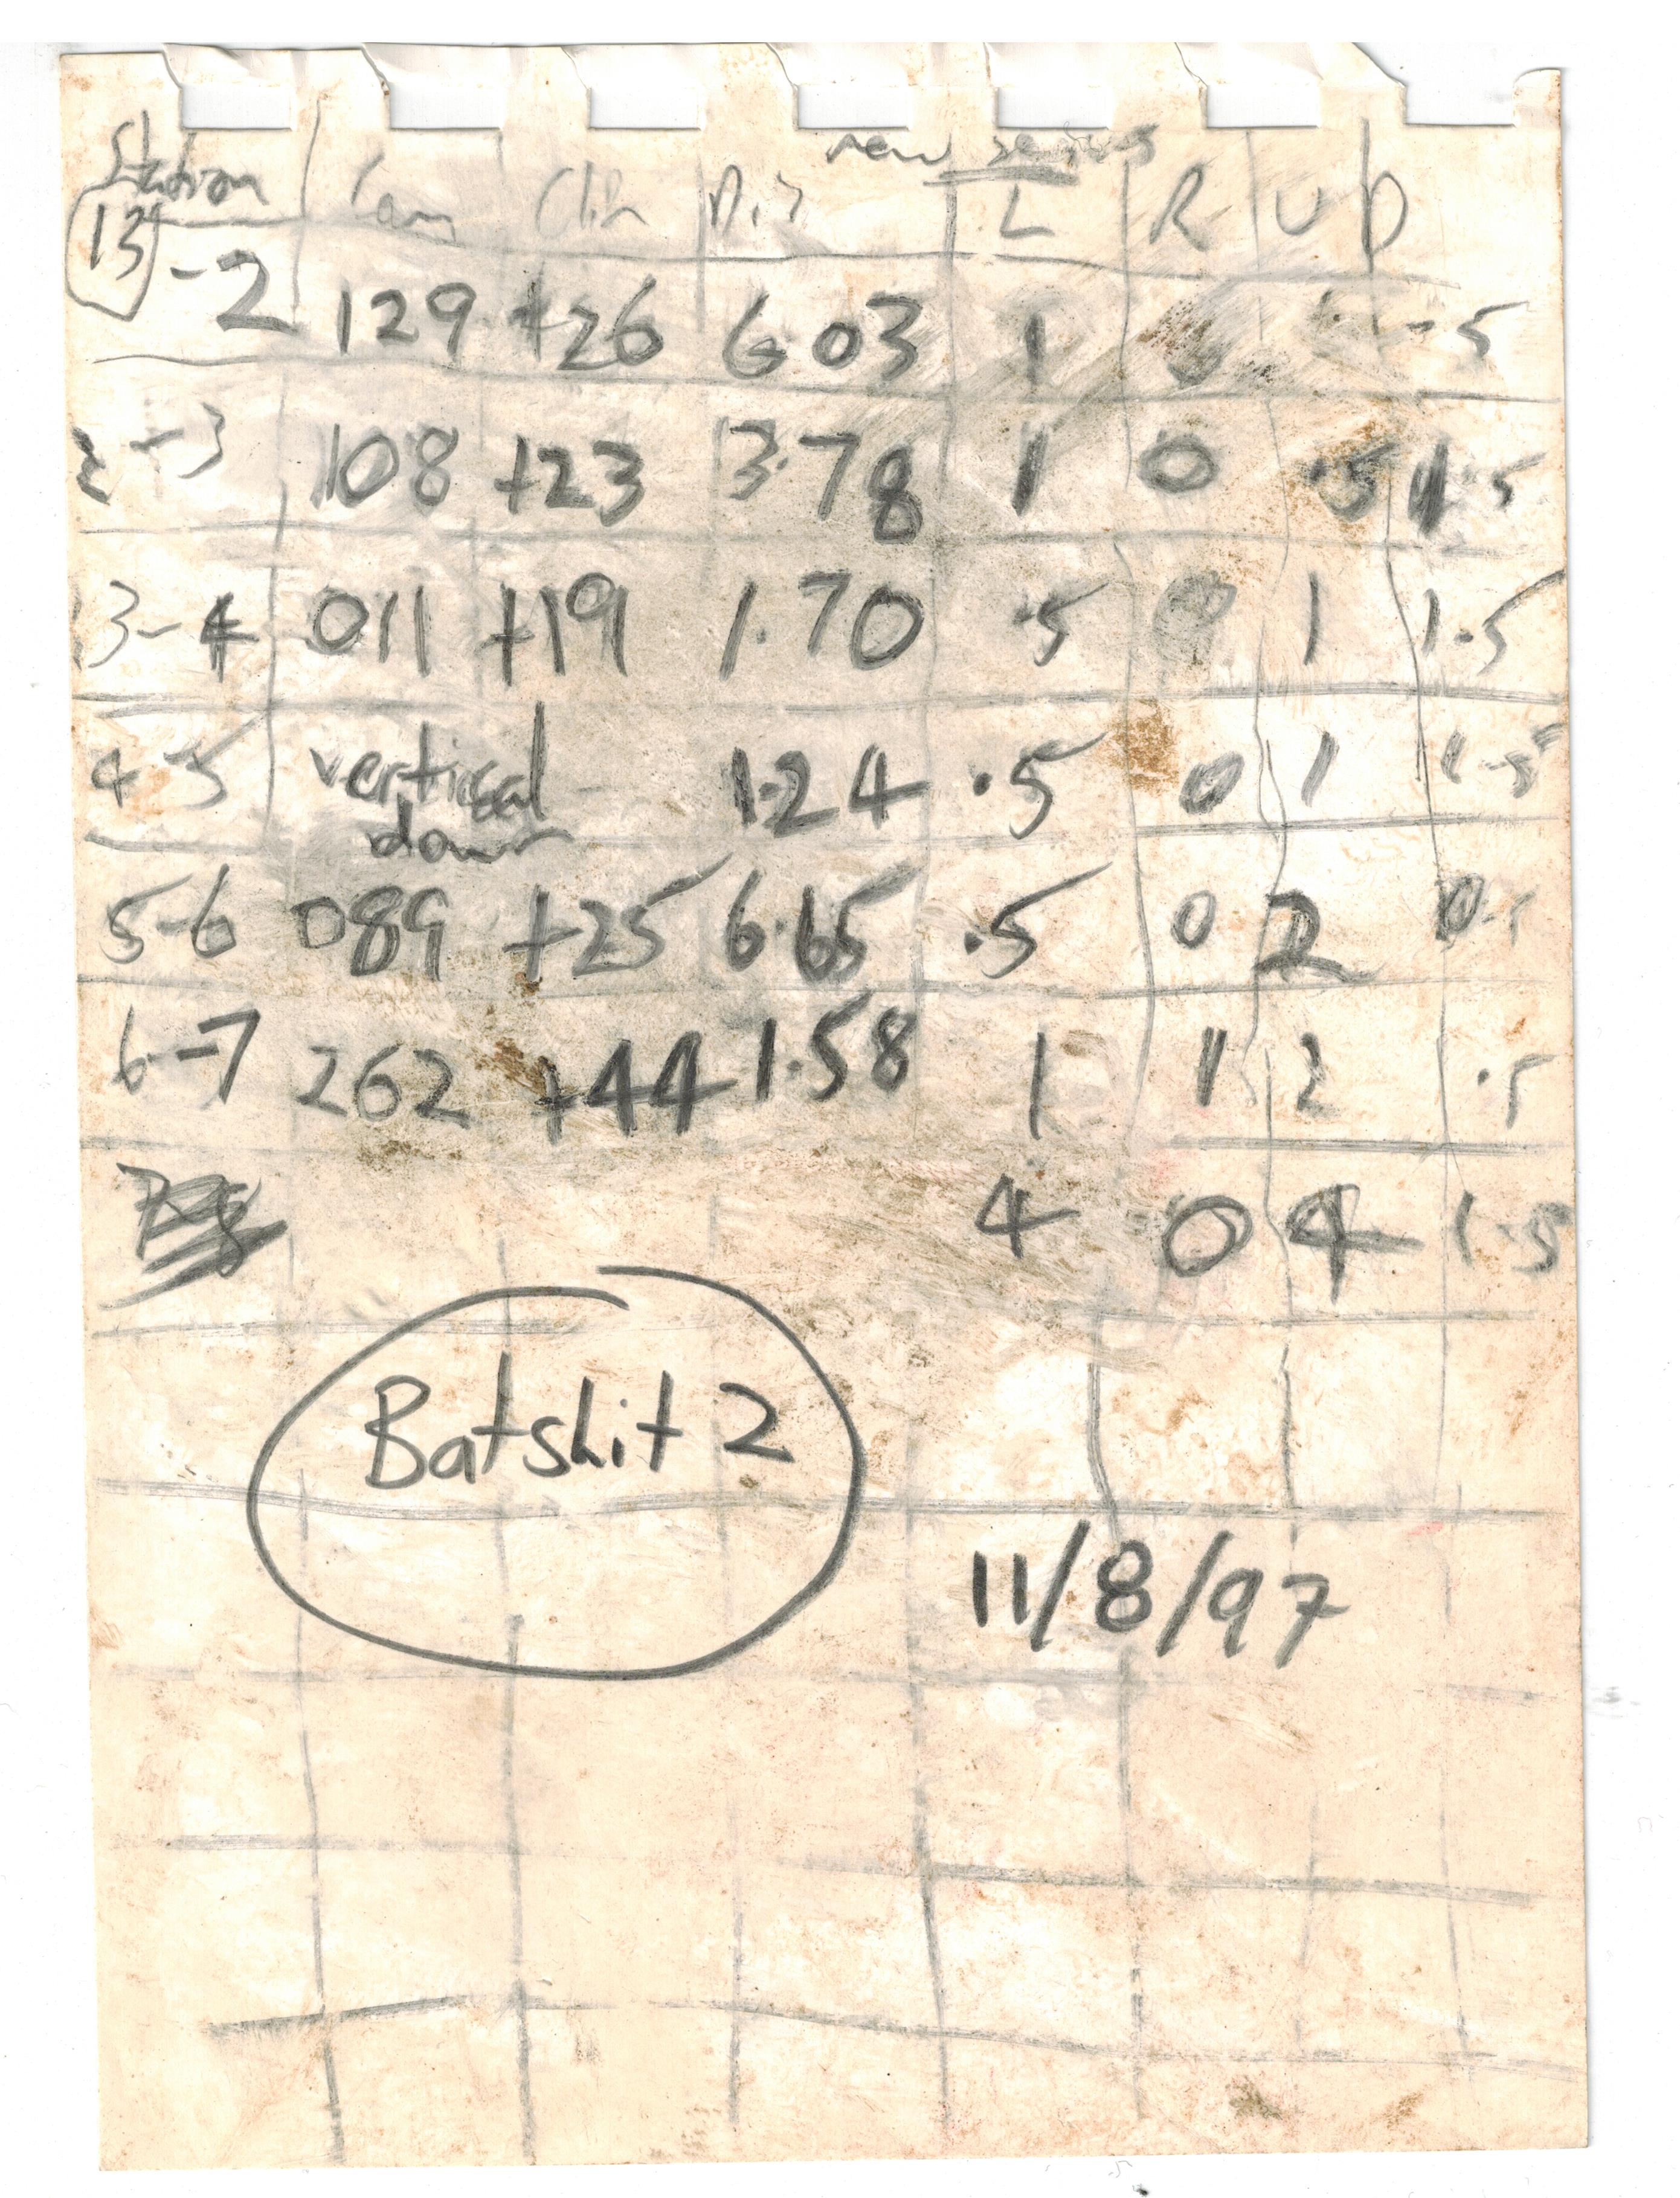 new series
Station Com Clin Dis L R U D
13 -2 129 +26 6.03 1 .5
2-3 108 +23 3.78 1 0 .5 1.5
3-4 011 +19 1.70 .5 0 1 1.5
4-5 vertical down 1.24 .5 0 1 1.5
5-6 089 +25 6.65 .5 0 2 0.5
6-7 262 +44 1.58 1 1 2 .5
4 0 4 1.5
Batshit 2
11/8/97